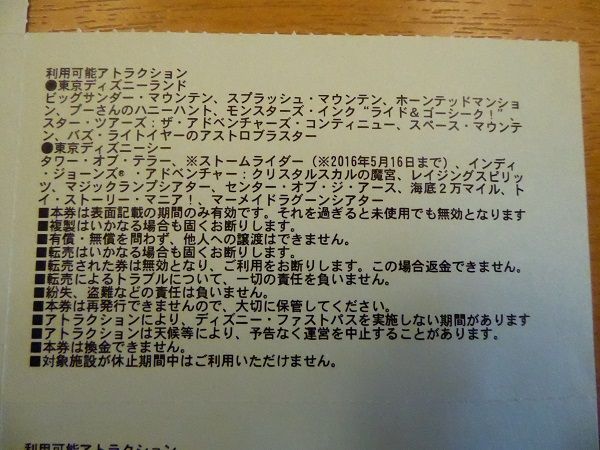 利用可能アトラクション
●東京ディズニーランド
ビッグサンダー・マウンテン、スプラッシュ・マウンテン、ホーンテッドマンショ
ン、プーさんのハニーハント、モンスターズ・インク“ライド&ゴーシーク!”、
スター・ツアーズ:ザ・アドベンチャーズ・コンティニュー、スペース・マウンテ
ン、バズ・ライトイヤーのアストロブラスター
●東京ディズニーシー
タワー・オブ・テラー、※ストームライダー(※2016年5月16日まで)、インディ
・ジョーンズ®・アドベンチャー:クリスタルスカルの魔宮、レイジングスピリッ
ツ、マジックランプシアター、センター・オブ・ジ・アース、海底2万マイル、ト
イ・ストーリー・マニア!、マーメイドラグーンシアター
■本券は表面記載の期間のみ有効です。それを過ぎると未使用でも無効となります
■複製はいかなる場合も固くお断りします。
■有償・無償を問わず、他人への譲渡はできません。
■転売はいかなる場合も固くお断りします。
■転売された券は無効となり、ご利用をお断りします。この場合返金できません。
■転売によるトラブルについて、一切の責任を負いません。
■紛失、盗難などの責任は負いません。
■本券は再発行できませんので、大切に保管してください。
■アトラクションにより、ディズニー・ファストパスを実施しない期間があります
■アトラクションは天候等により、予告なく運営を中止することがあります。
■本券は換金できません。
■対象施設が休止期間中はご利用いただけません。
利用可能アトラクション